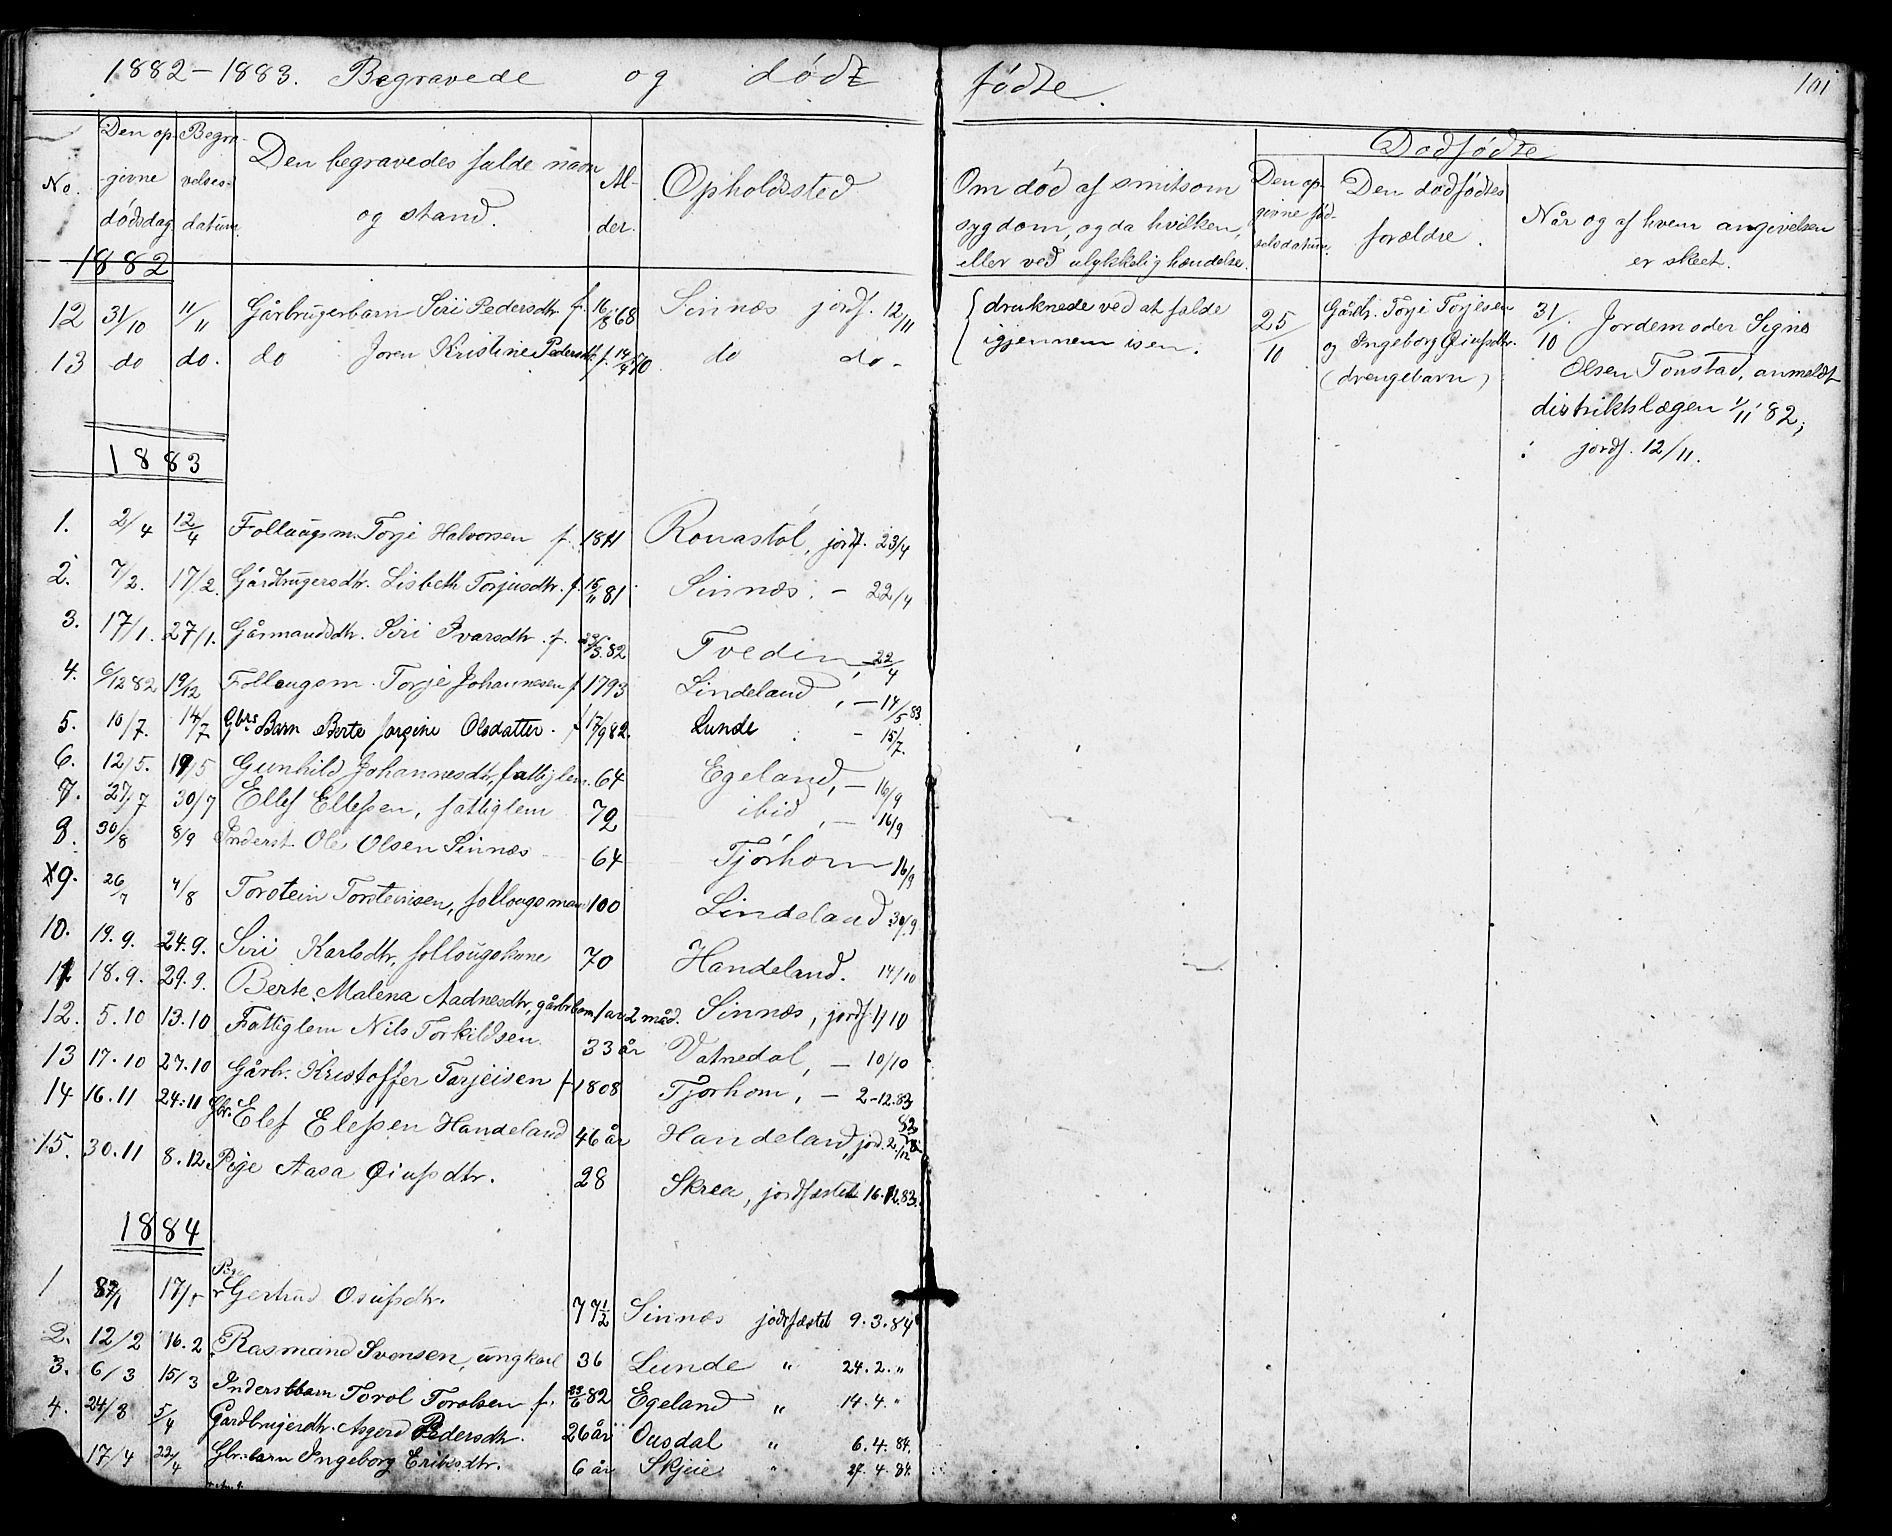 1882-1883. Begravede og død- fødte. 101
No. | Den op- givne dødsdag | Begra- velses- datum. | Den begravedes fulde navn og stand. | Al- der. | Opholdsted | Om død af smitsom sygdom, og da hvilken, eller ved ulykkelig hændelse. | Dødfødte
Den op- givne fød- selsdatum. | Den dødfødtes forældre. | Når og af hvem angivelsen er skeet.
1882
12 31/10 11/11 Gårbrugerbarn Siri Pedersdtr. f. 16/8 68 Sinnæs jordf. 12/11 { druknede ved at falde igjennem isen.
13 do do. do Joren Kristine Pedersdtr. f. 14/4 70 do do -
25/10 Gårdbr. Torje Torjesen og Ingeborg Øiufsdtr. (drengebarn)
31/10 Jordemoder Signe
Olsen Tonstad, anmeldt
distriktslægen 1/11 82;
jordf. 12/11.
1883
1. 2/4 12/4 Follaugsm. Torje Halvorsen f. 1811 Ronastøl, jordf. 23/4
2. 7/2. 17/2. Gårdbrugersdtr. Lisbeth Torjusdtr. f. 15/11 81 Sinnæs. - 22/4
3. 17/1. 27/1. Gårmandsdtr. Siri Ivarsdtr. f. 29/5. 82 Tveden, - 22/4
4. 6/12 82 19/12 Follaugsm. Torje Johannesen f. 1793 Lindeland, - 14/5 83.
5. 10/7. 14/7 Gbrs Barn Berte Jorgine Olsdatter. f. 17/9 82. Lunde - 15/7.
6. 12/5. 19/5 Gunhild Johannesdtr, fattiglem. 64 Egeland, - 16/9
7. 27/7 30/7 Ellef Ellefsen, fattiglem 72 ibid, - 16/9
8. 30/8 8/9 Inderst. Ole Olsen Sinnæs 64 Tjørhom 16/9
x9. 26/7 4/8 Torstein Torsteinsen, follougsman 100 Lindeland 30/9.
10. 19.9. 24.9. Siri Karlsdtr, follougskone 70 Handeland. 14/10
11 18.9. 29.9. Berte Malena Aadnesdtr, gårbrbarn 1 år 2 måd. Sinnæs, jordf. 1/10
12. 5.10 13.10 Fattiglem Nils Torkildsen. 33 år Vatnedal, - 10/10
13 17.10 27.10 Gårbr. Kristoffer Tarjeisen f. 1808 Tjørhom, - 2-12.83
14 16.11 24.11 Gbr. Elef Elefsen Handeland 46 år Handeland, jord. 2/12 83
15. 30.11 8.12 Pige Aasa Øiufsdtr. 28 Skrea, jordfæstet 16.12.83.
1884
1 17/1 Pige Gertrud Osufsdtr. 77 1/2 Sinnæs jodrfæstet 9.3.84
2. 12/2 16.2 Rasmund Svensen, ungkarl 36 Lunde " 24.2. "
3. 6/3 15/3 Inderstbarn Torol Torolsen f. 23/6 82 Egeland " 14.4. "
4. 24/3 5/4 Gardbrugerdtr. Asgerd Pedersdtr. 26 år Ousdal " 6.4.84.
17/4 22/4 Gbr.barn Ingeborg Eriksdtr. 6 år Skjeie " 27.4.84.